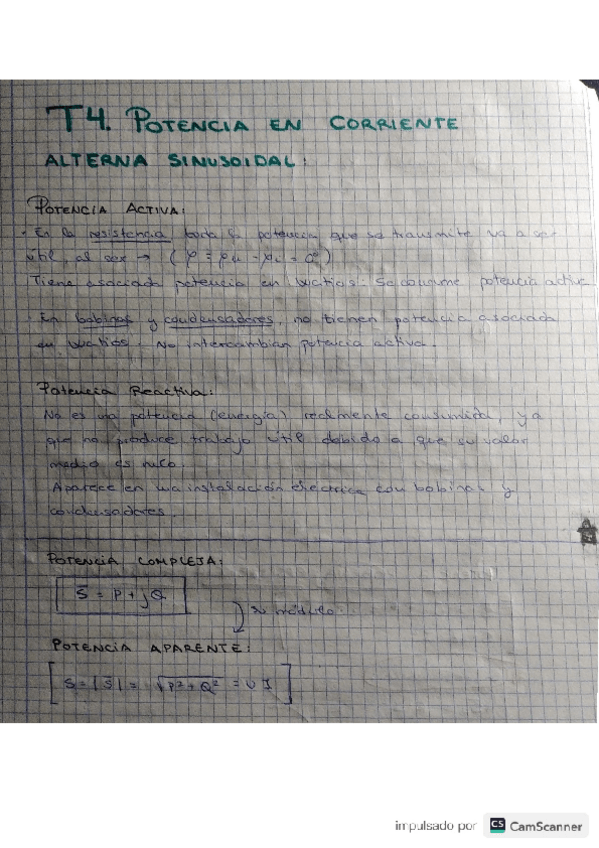 T4. POTENCIA EN CORRIENTE
ALTERNA SINUSOIDAL:
POTENCIA ACTIVA:
- En la resistencia toda la potencia que se transmite va a ser
útil, al ser → ( φ = φu - φi = 0º )
Tiene asociada potencia en watios. Se consume potencia activa
- En bobinas y condensadores, no tienen potencia asociada
en watios. No intercambian potencia activa.
Potencia Reactiva:
No es una potencia (energía) realmente consumida, ya
que no produce trabajo útil debido a que su valor
medio es nulo.
Aparece en una instalación eléctrica con bobinas y
condensadores.
POTENCIA COMPLEJA:
S̄ = P + jQ
Su módulo:
POTENCIA APARENTE:
S = |S̄| = √P²+Q² = U I
impulsado por CS CamScanner